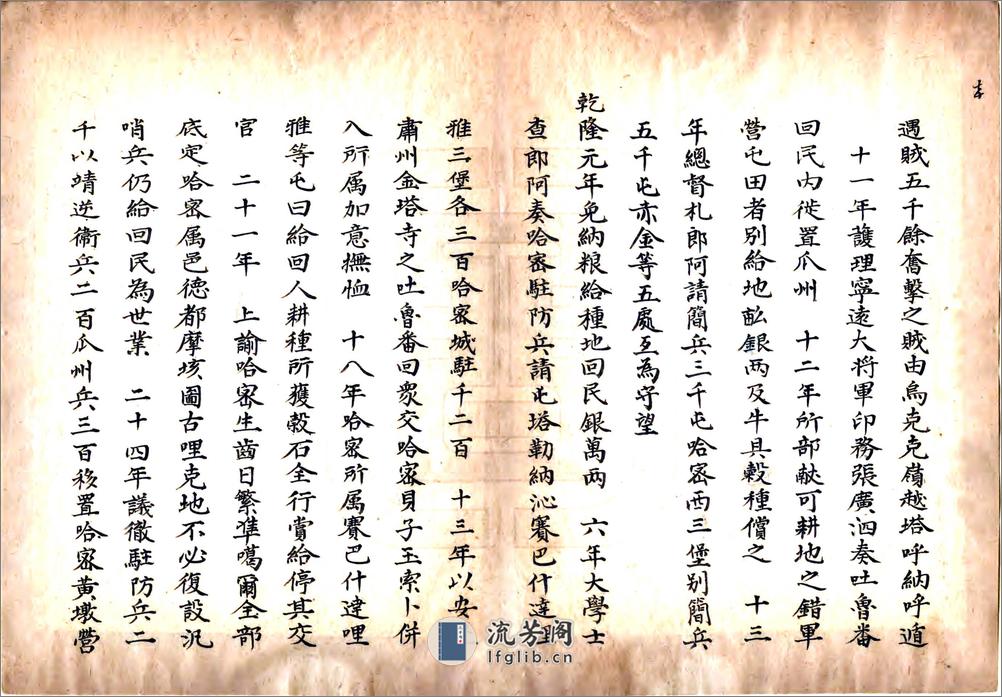 遇賊五千餘奮擊之賊由烏克克嶺越塔呼納呼遁
十一年護理寧遠大将軍印務張廣泗奏吐魯番
回民内徙置瓜州 十二年所部献可耕地之錯軍
營屯田者别給地畝銀两及牛具穀種償之 十三
年總督札郎阿請簡兵三千屯哈密西三堡别簡兵
五千屯赤金等五處互為守望
乾隆元年免納粮給種地回民銀萬两 六年大學士
查郎阿奏哈密駐防兵請屯塔勒納沁賽巴什達理
雅三堡各三百哈密城駐千二百 十三年以安
肅州金塔寺之吐魯番回衆交哈密貝子玉索卜併
入所属加意撫恤 十八年哈密所属賽巴什達哩
雅等屯曰給回人耕種所獲穀石全行賞給停其交
官 二十一年 上諭哈密生齒日繁準噶爾全部
底定哈密属邑德都摩垓圖古哩克地不必復設汛
哨兵仍給回民為世業 二十四年議徹駐防兵二
千以靖逆衛兵二百瓜州兵三百移置哈密黄墩營
流芳閣
lfglib.cn